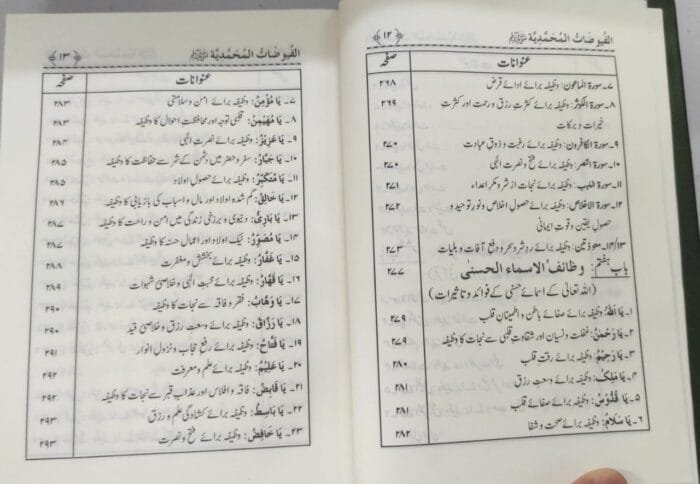 الفُیُوضَاتُ المُحَمَّدِیَّة ﷺ ﴿۱۲﴾
عنوانات صفحہ
۷۔ سورۃ الماعون: وظیفہ برائے ادائے قرض ۲۶۸
۸۔ سورۃ الکوثر: وظیفہ برائے کثرتِ رزق و رحمت اور کثرتِ ۲۶۹
خیرات و برکات
۹۔ سورۃ الکافرون: وظیفہ برائے رغبت و ذوقِ عبادت ۲۷۰
۱۰۔ سورۃ النصر: وظیفہ برائے فتح و نصرتِ الٰہی ۲۷۰
۱۱۔ سورۃ اللہب: وظیفہ برائے نجات از شر و مکرِ اعداء ۲۷۱
۱۲۔ سورۃ الاخلاص: وظیفہ برائے حصولِ اخلاص و نورِ توحید و ۲۷۲
حصولِ یقین و قوتِ ایمانی
۱۳/۱۴۔ معوذتین: وظیفہ برائے ردِ شر و سحر و رفعِ آفات و بلیات ۲۷۳
باب ہفتم: وظائف الاسماء الحسنٰی ۲۷۷
(اللہ تعالیٰ کے اسمائے حسنٰی کے فوائد و تاثیرات)
۱۔ یَا اَللهُ: وظیفہ برائے صفائے باطن و اطمینانِ قلب ۲۷۹
۲۔ یَا رَحْمٰنُ: غفلت و نسیان اور شقاوتِ قلبی سے نجات کا وظیفہ ۲۷۹
۳۔ یَا رَحِیْمُ: وظیفہ برائے رقتِ قلب ۲۸۰
۴۔ یَا مَلِکُ: وظیفہ برائے وسعتِ رزق ۲۸۱
۵۔ یَا قُدُّوْسُ: وظیفہ برائے صفائے قلب ۲۸۱
۶۔ یَا سَلَامُ: وظیفہ برائے صحت و شفا ۲۸۲
الفُیُوضَاتُ المُحَمَّدِیَّة ﷺ ﴿۱۳﴾
عنوانات صفحہ
۷۔ یَا مُؤْمِنُ: وظیفہ برائے امن و سلامتی ۲۸۳
۸۔ یَا مُھَیْمِنُ: قلبی توجہ اور محافظتِ احوال کا وظیفہ ۲۸۳
۹۔ یَا عَزِیْزُ: وظیفہ برائے نصرتِ الٰہی ۲۸۴
۱۰۔ یَا جَبَّارُ: سفر و حضر میں دشمن کے شر سے حفاظت کا وظیفہ ۲۸۵
۱۱۔ یَا مُتَکَبِّرُ: وظیفہ برائے حصولِ اولاد ۲۸۵
۱۲۔ یَا خَالِقُ: گم شدہ اولاد اور مال و اسباب کی بازیابی کا وظیفہ ۲۸۶
۱۳۔ یَا بَارِئُ: دنیوی و برزخی زندگی میں امن و راحت کا وظیفہ ۲۸۷
۱۴۔ یَا مُصَوِّرُ: نیک اولاد اور اعمالِ حسنہ کا وظیفہ ۲۸۷
۱۵۔ یَا غَفَّارُ: وظیفہ برائے بخشش و مغفرت ۲۸۸
۱۶۔ یَا قَھَّارُ: وظیفہ برائے محبتِ الٰہی و خلاصیِ شہوات ۲۸۹
۱۷۔ یَا وَھَّابُ: فقر و فاقہ سے نجات کا وظیفہ ۲۹۰
۱۸۔ یَا رَزَّاقُ: وظیفہ برائے وسعتِ رزق و خلاصیِ قید ۲۹۰
۱۹۔ یَا فَتَّاحُ: وظیفہ برائے رفعِ حجاب و نزولِ انوار ۲۹۱
۲۰۔ یَا عَلِیْمُ: وظیفہ برائے علم و معرفت ۲۹۲
۲۱۔ یَا قَابِضُ: فاقہ و افلاس اور عذابِ قبر سے نجات کا وظیفہ ۲۹۲
۲۲۔ یَا بَاسِطُ: وظیفہ برائے کشادگیِ علم و رزق ۲۹۳
۲۳۔ یَا خَافِضُ: وظیفہ برائے فتح و نصرت ۲۹۳